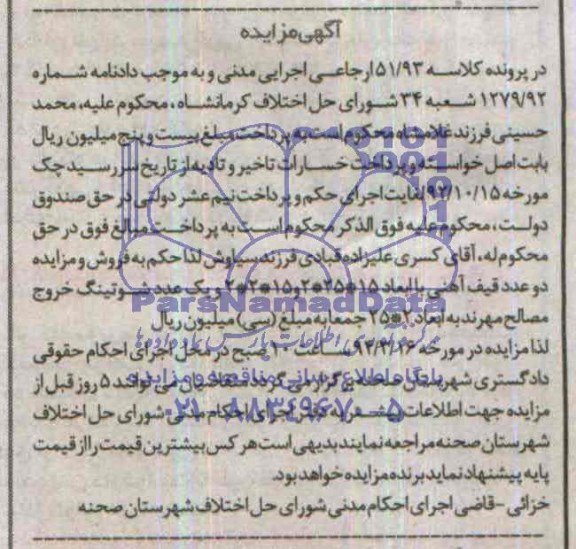 آگهی مزایده
در پرونده کلاسه ۵۱/۹۳ ارجاعی اجرایی مدنی و به موجب دادنامه شماره
۱۲۷۹/۹۲ شعبه ۳۴ شورای حل اختلاف کرمانشاه، محکوم علیه، محمد
حسینی فرزند غلامشاه محکوم است به پرداخت مبلغ بیست و پنج میلیون ریال
بابت اصل خواسته و پرداخت خسارات تاخیر و تادیه از تاریخ سررسید چک
مورخه ۹۲/۱۰/۱۵ لغایت اجرای حکم و پرداخت نیم عشر دولتی در حق صندوق
دولت، محکوم علیه فوق الذکر محکوم است به پرداخت مبالغ فوق در حق
محکوم له، آقای کسری علیزاده قبادی فرزند سیاوش لذا حکم به فروش و مزایده
دو عدد قیف آهنی با ابعاد و یک عدد شوتینگ خروج
ParsNamadData
مصالح مهرند به ابعاد ۲*۲۵ جمعا به مبلغ (سی) میلیون ریال
لذا مزایده در مورخه ساعت ۱۰ صبح در محل اجرای احکام حقوقی
دادگستری شهرستان صحنه برگزار می گردد متقاضیان می توانند ۵ روز قبل از
پایگاه اطلاع رسانی مناقصه و مزایده
مزایده جهت اطلاعات به دفتر اجرای احکام مدنی شورای حل اختلاف
۰۲۱-۸۸۳۴۹۶۷۰-۵
شهرستان صحنه مراجعه نمایند بدیهی است هر کس بیشترین قیمت را از قیمت
پایه پیشنهاد نماید برنده مزایده خواهد بود.
خزائی - قاضی اجرای احکام مدنی شورای حل اختلاف شهرستان صحنه